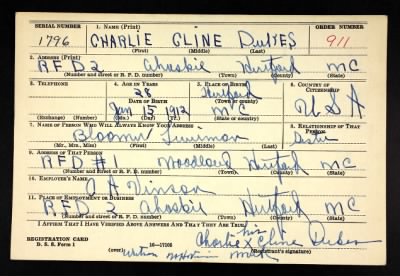 SERIAL NUMBER 1. NAME (Print) ORDER NUMBER
1796 CHARLIE CLINE Dukes 911
(First) (Middle) (Last)
2. ADDRESS (Print)
RFD 2 Ahoskie Hertford NC
(Number and street or R. F. D. number) (Town) (County) (State)
3. TELEPHONE 4. AGE IN YEARS 5. PLACE OF BIRTH 6. COUNTRY OF CITIZENSHIP
28 Hertford
DATE OF BIRTH (Town or county)
Jan 15 1912 NC USA
(Exchange) (Number) (Mo.) (Day) (Yr.) (State or country)
7. NAME OF PERSON WHO WILL ALWAYS KNOW YOUR ADDRESS 8. RELATIONSHIP OF THAT PERSON
Sister
(Mr., Mrs., Miss) (First) (Middle) (Last)
9. ADDRESS OF THAT PERSON
RFD #1 Woodland Hertford NC
(Number and street or R. F. D. number) (Town) (County) (State)
10. EMPLOYER'S NAME
Vinson
11. PLACE OF EMPLOYMENT OR BUSINESS
RFD 2 Ahoskie Hertford NC
(Number and street or R. F. D. number) (Town) (County) (State)
I AFFIRM THAT I HAVE VERIFIED ABOVE ANSWERS AND THAT THEY ARE TRUE.
his
REGISTRATION CARD Charlie X Cline Dukes
D. S. S. Form 1 16—17105 (Registrant's signature)
(over) mark